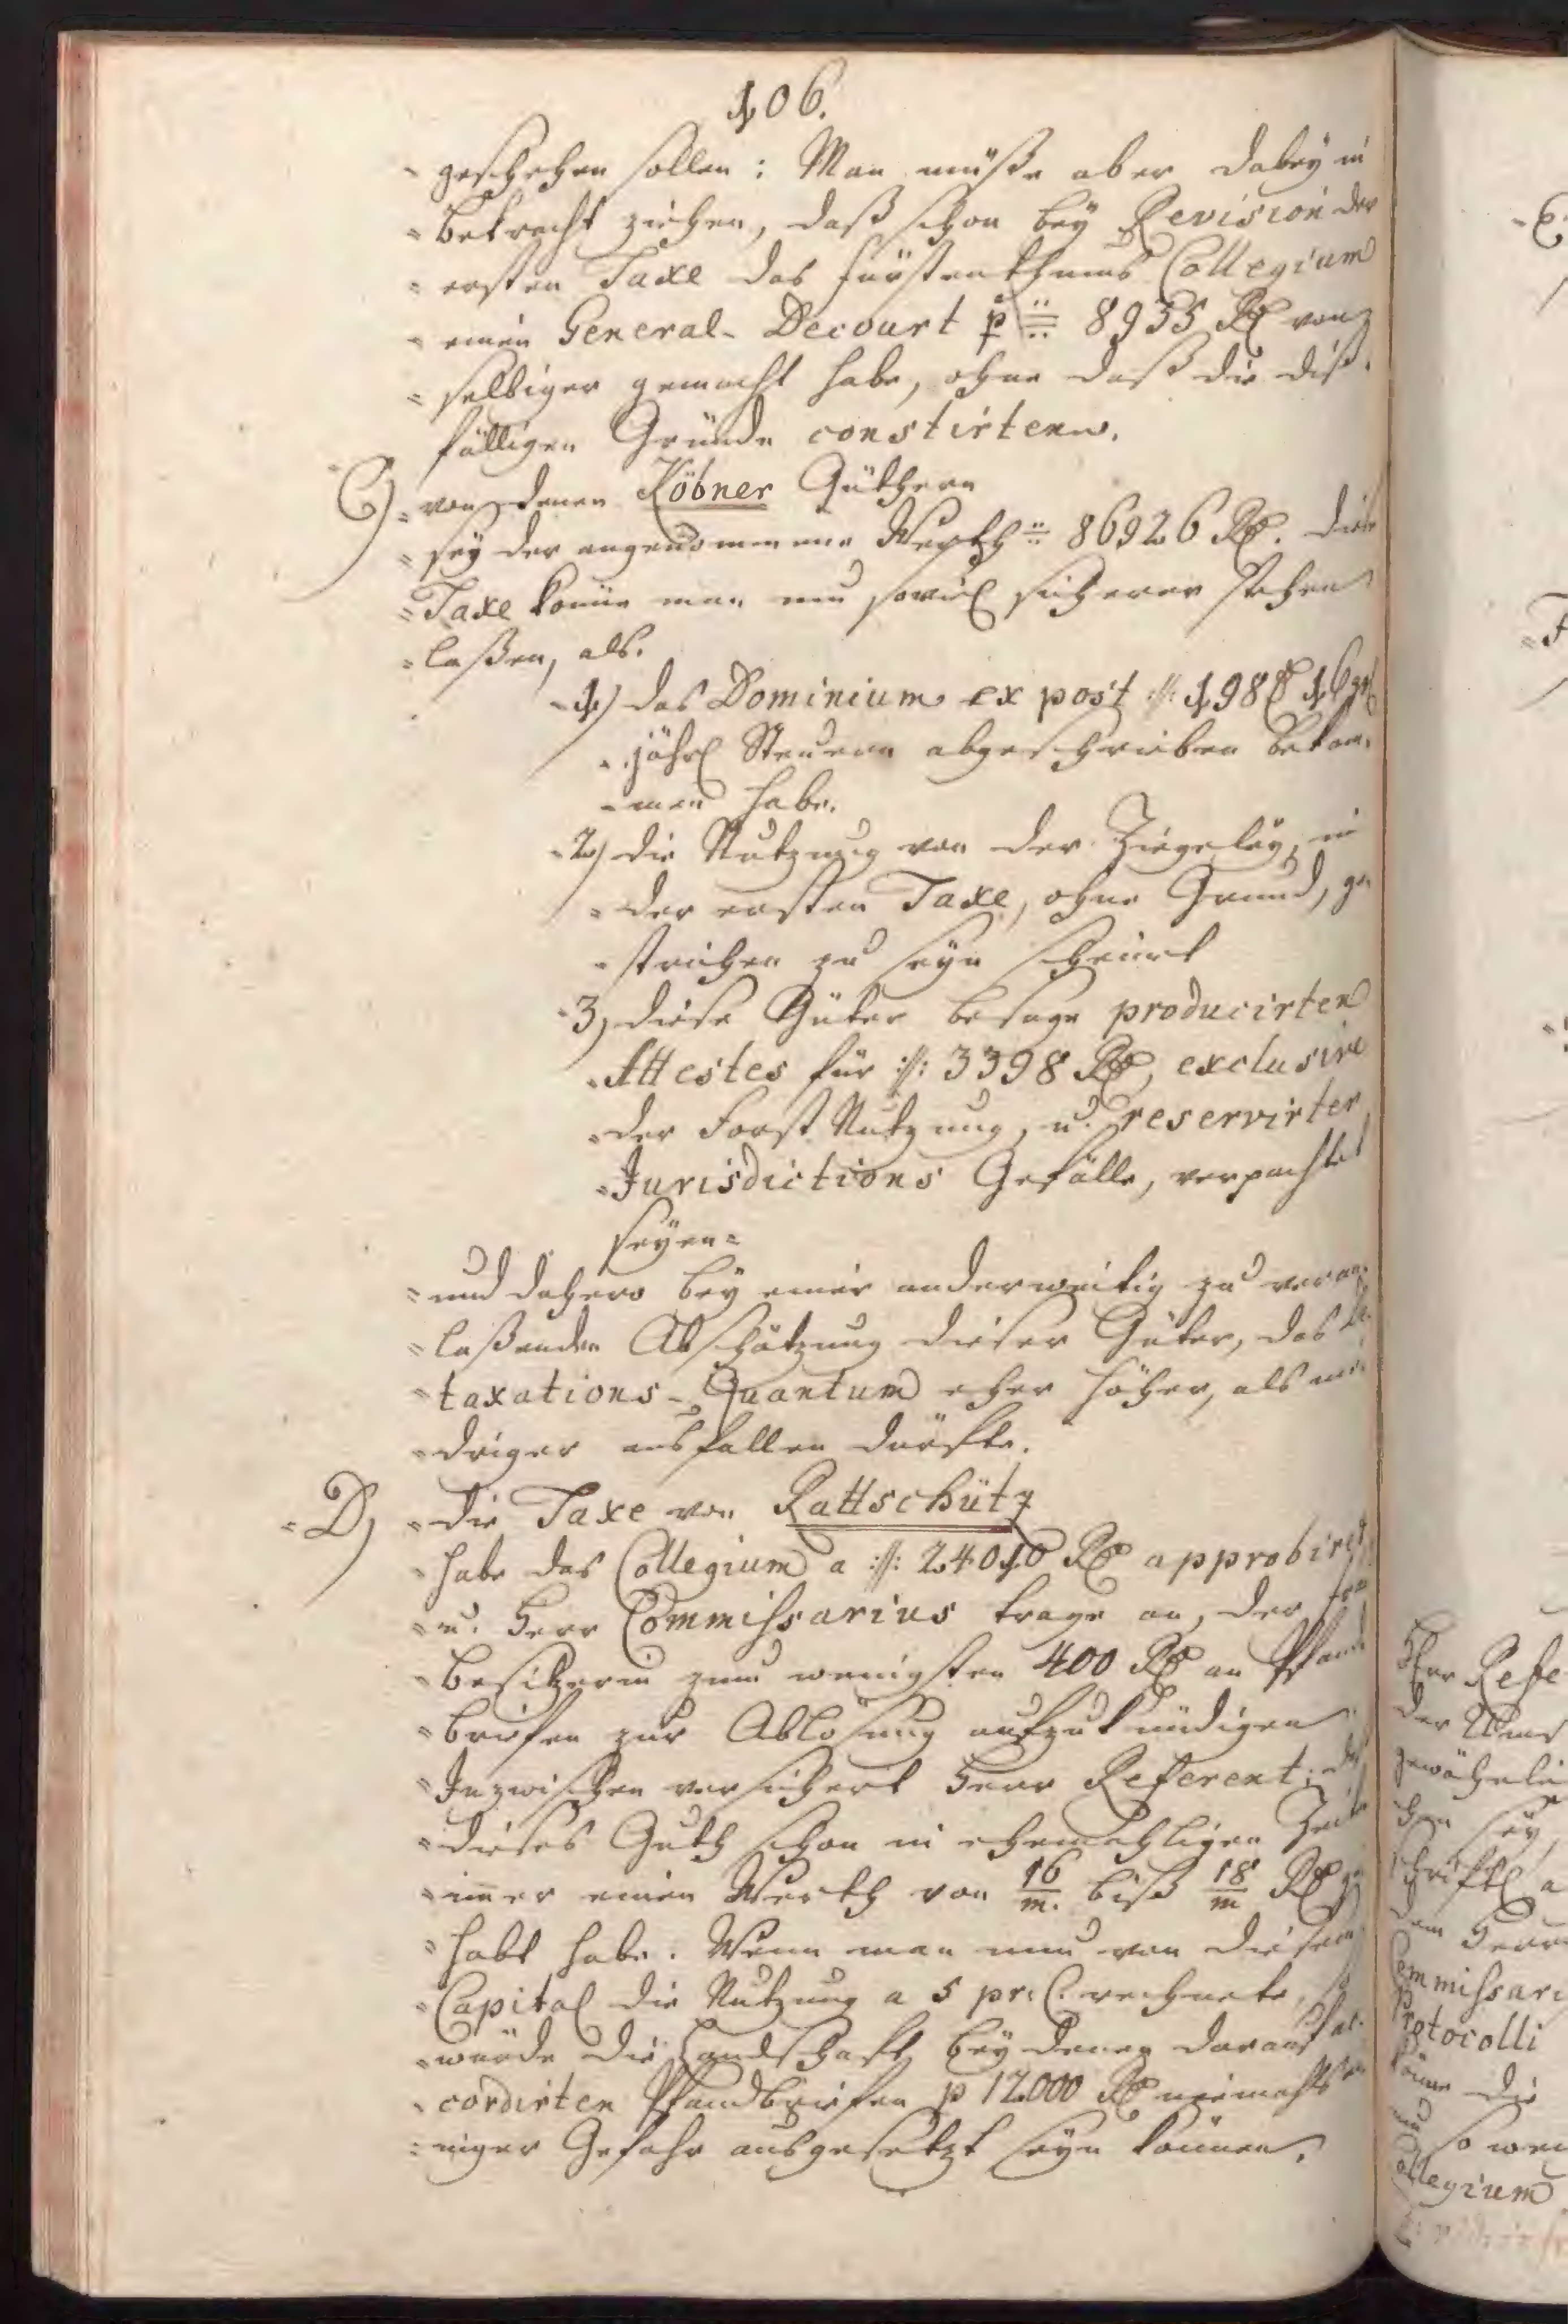 106.
geschehen sollen: Man müße aber dabey in
Betracht ziehen, daß schon bey Revision der
ersten Taxe das Fürstenthums Collegium
einen General-Decourt p 8935 Rl von
selbiger gemacht habe, ohne daß die diß-
fälligen Gründe constirten.
C) von denen Köbner Güthern
sey der angenommene Werth 86926 Rl. diese
Taxe könne man um soviel sicherer stehen
laßen, als.
1.) das Dominium ex post :/: 198 16 gr
jährl Steuern abgeschrieben bekom-
men habe.
2.) die Nutzung von der Ziegeley, in
der ersten Taxe, ohne Grund, ge-
strichen zu seyn scheint
3.) diese Güter besage producirten
Attestes für :/: 3398 Rl, exclusive
der Forst Nutzung, u. reservirter
Jurisdictions Gefälle, verpachtet
seyen=
und dahero bey einer anderweitig zu veran-
laßenden Abschätzung dieser Güter, das De-
taxations-Quantum eher höher, als nie-
driger ausfallen dürfte.
D) die Taxe von Rattschütz
habe das Collegium a :/: 24010 Rl approbiret
u. Herr Commissarius trage an, der Frau
Besitzerin zum wenigsten 400 Rl an Pfand-
briefen zur Ablösung aufzukündigen.
Inzwischen versichert Herr Referent, daß
dieses Guth schon in ehemahligen Zeiten
immer einen Werth von 16/m. biß 18/m Rl ge-
habt habe. Wenn man nun von diesem
Capital die Nutzung a 5 pr. C. rechnete, so
würde die Landschaft bey denen darauf ac-
cordirten Pfandbriefen p 12000 Rl niemahls ei-
niger Gefahr ausgesetzt seyn können.
Herr Refe
der Ums
schriftl a
dem Herrn
Commissari
Protocolli
könne die
so wen
Collegium